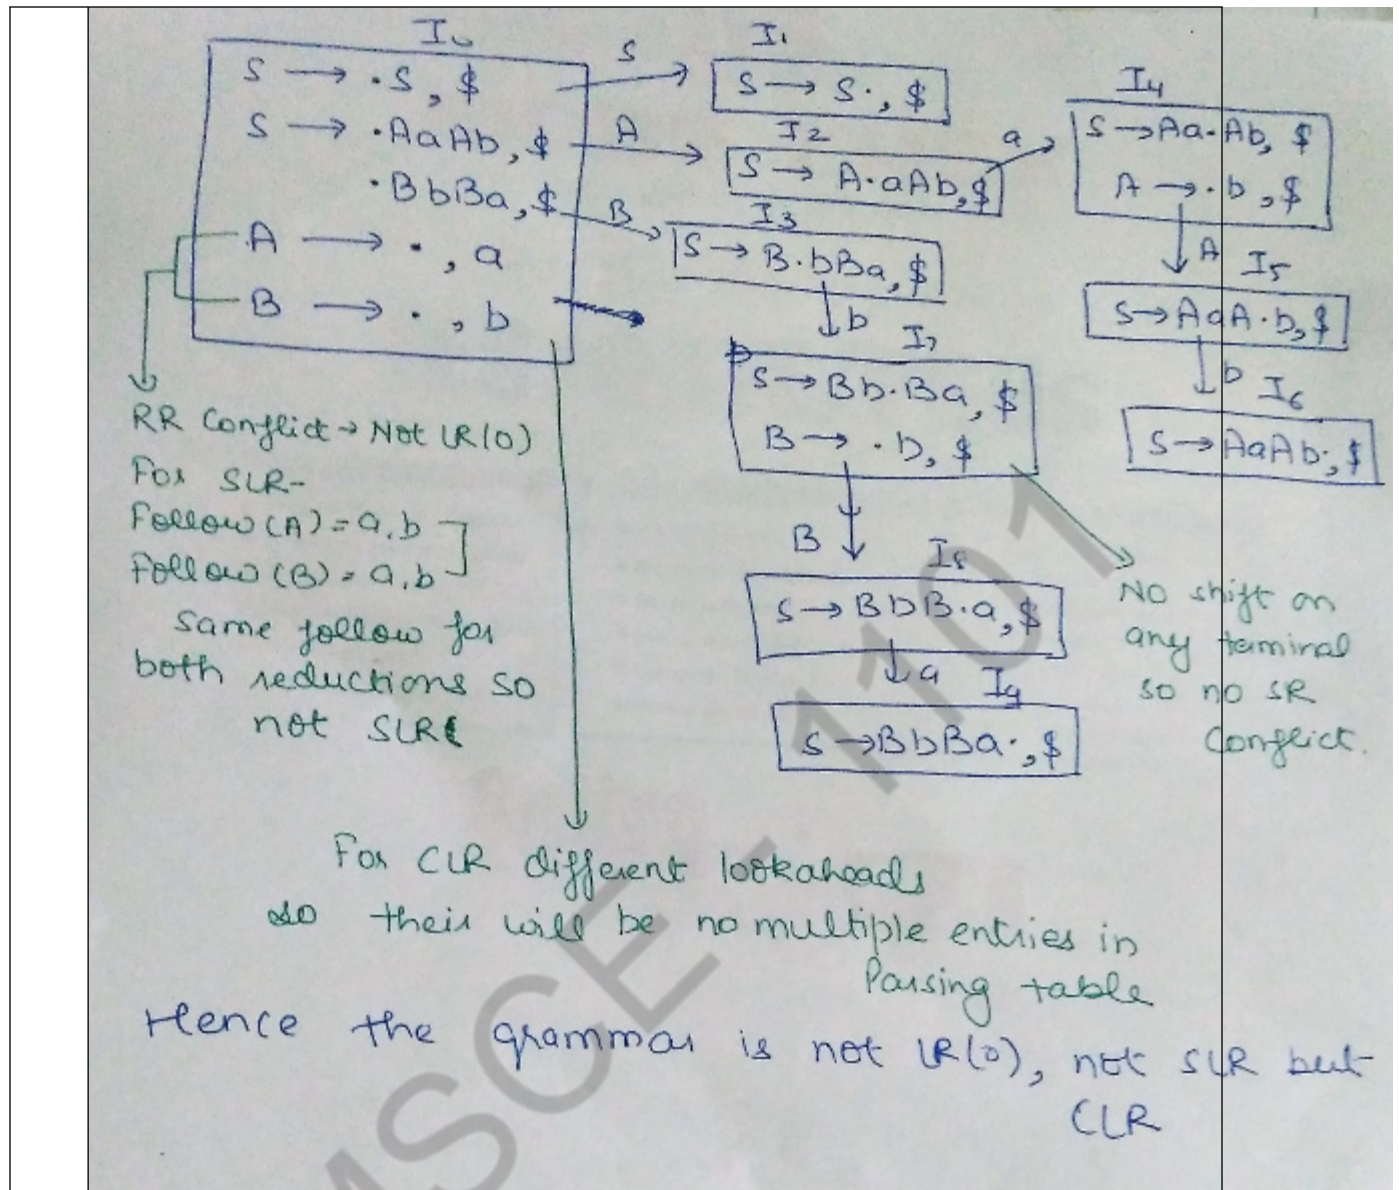 I0
S → ·S, $
S → ·AaAb, $
·BbBa, $
A → ·, a
B → ·, b
S
I1
S → S·, $
A
I2
S → A·aAb, $
B
I3
S → B·bBa, $
a
I4
S → Aa·Ab, $
A → ·b, $
A
I5
S → AaA·b, $
b
I6
S → AaAb·, $
b
I7
S → Bb·Ba, $
B → ·b, $
B
I8
S → BbB·a, $
a
I9
S → BbBa·, $
RR Conflict → Not LR(0)
For SLR-
Follow(A) = a, b
Follow(B) = a, b
Same follow for
both reductions so
not SLR
No shift on
any terminal
so no SR
Conflict.
For CLR different lookaheads
so their will be no multiple entries in
Parsing table
Hence the grammar is not LR(0), not SLR but
CLR
MSCE - 1101